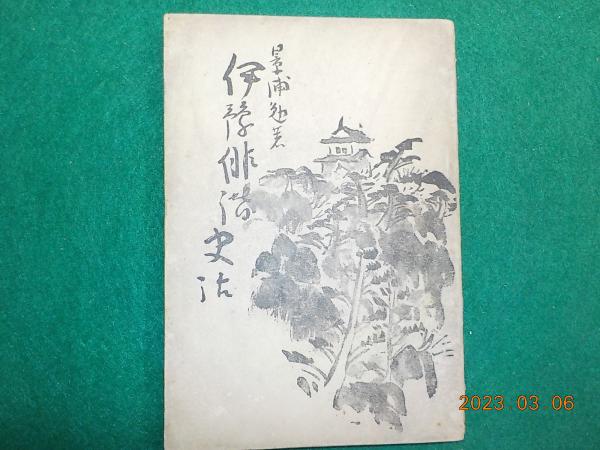 景浦勉著
伊豫俳諧史話
2023.03.06